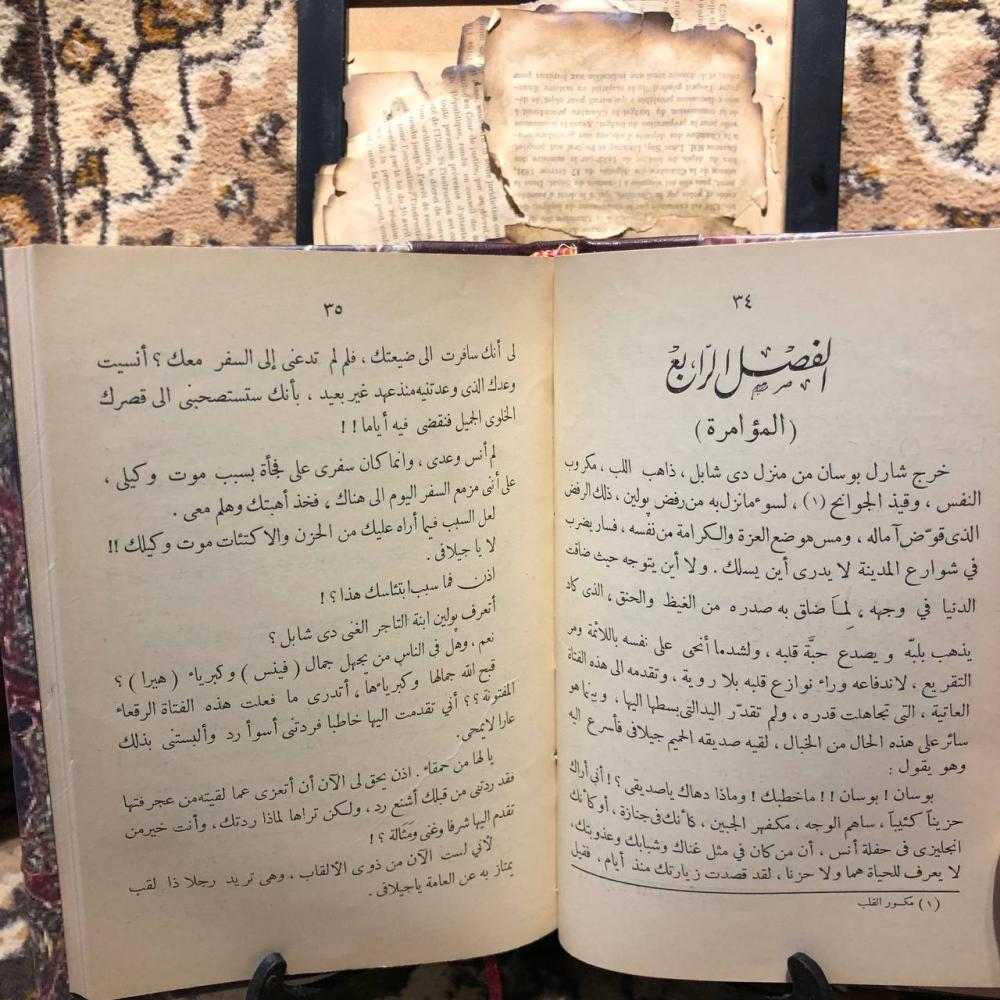 ٣٤
الفصل الرابع
(المؤامرة)
خرج شارل بوسان من منزل دى شابل ، ذاهب اللب ، مكروب
النفس ، وقيذ الجوانح (١) ، لسوء مانزل به من رفض بولين ، ذلك الرفض
الذى قوّض آماله ، ومس موضع العزة والكرامة من نفسه ، فسار يضرب
في شوارع المدينة لا يدرى أين يسلك . ولا أين يتوجه حيث ضاقت
الدنيا في وجهه ، لِمـاَ ضاق به صدره من الغيظ والحنق ، الذى كاد
يذهب بلبّه ويصدع حبَّة قلبه ، ولشدما أنحى على نفسه باللائمة ومر
التقريع ، لاندفاعه وراء نوازع قلبه بلا روية ، وتقدمه الى هذه الفتاة
العاتية ، التى تجاهلت قدره ، ولم تقدّر اليد التى بسطها اليها ، وبينما هو
سائر على هذه الحال من الخبال ، لقيه صديقه الحميم جيلافى فأسرع اليه
وهو يقول :
بوسان ! بوسان !! ماخطبك ! وماذا دهاك ياصديقى ؟! أنى أراك
حزيناً كئيباً ، ساهم الوجه ، مكفهر الجبين ، كأنك فى جنازة ، أو كأنك
انجليزى فى حفلة أنس ، أن من كان في مثل غناك وشبابك وعذوبتك،
لا يعرف للحياة هما ولا حزنا ، لقد قصدت زيارتك منذ أيام . فقيل
(١) مكسور القلب
٣٥
لى أنك سافرت الى ضيعتك ، فلم لم تدعنى إلى السفر معك ؟ أنسيت
وعدك الذى وعدتنيه منذ عهد غير بعيد ، بأنك ستستصحبنى الى قصرك
الخلوى الجميل فنقضى فيه أياما !!
لم أنس وعدى ، وانما كان سفرى على فجأة بسبب موت وكيلى ،
على أننى مزمع السفر اليوم الى هناك ، فخذ أهبتك وهلم معى .
لعل السبب فيما أراه عليك من الحزن والاكتئات موت وكيلك !!
لا يا جيلافى .
اذن فما سبب ابتئاسك هذا ؟!
أتعرف بولين ابنة التاجر الغنى دى شابل ؟
نعم ، وهل فى الناس من يجهل جمال ( فينس ) وكبرياء ( هيرا ) ؟
قبح الله جمالها وكبرياءها ، أتدرى ما فعلت هذه الفتاة الرقعاء
المفتونة ؟؟ أنى تقدمت اليها خاطبا فردتنى أسوأ رد وألبستنى بذلك
عارا لايمحى .
يالها من حمقاء . اذن يحق لى الآن أن أتعزى عما لقيته من عجرفتها
فقد ردتنى من قبلك أشنع رد ، ولكن تراها لماذا ردتك ، وأنت خير من
تقدم اليها شرفا وغنى ومَثَالة ؟!
لأنى لست الآن من ذوى الألقاب ، وهى تريد رجلا ذا لقب
يمتاز به عن العامة ياجيلافى .